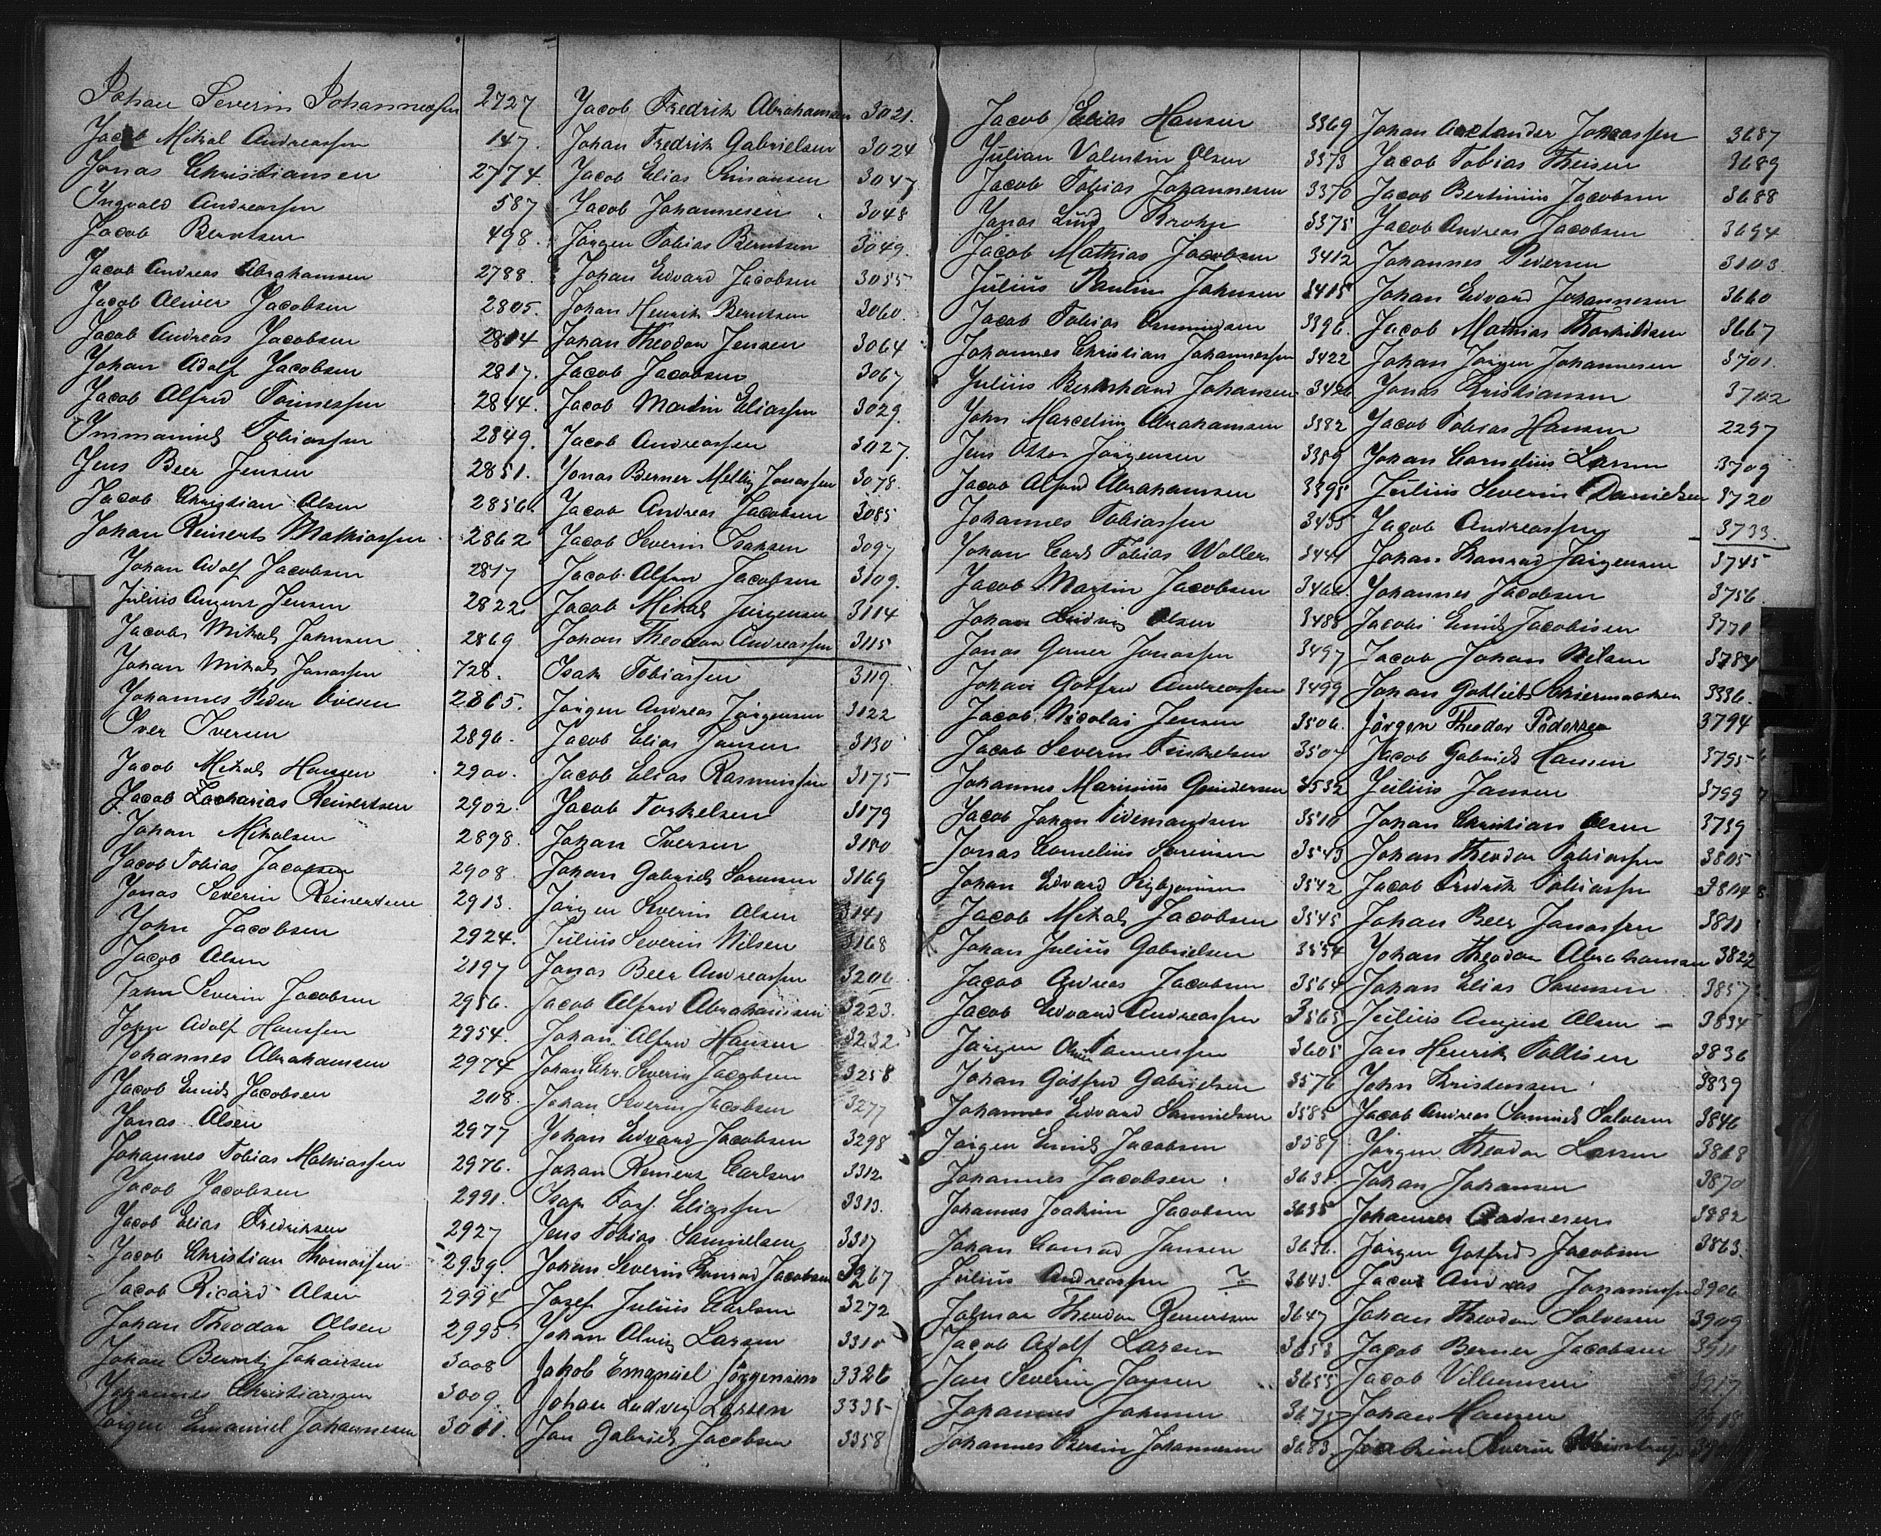 Johan Severin Johannessen 2727
Jacob Mikal Andreassen 147.
Jonas Christiansen 2774.
Ingvald Andreassen 587
Jacob Berntsen 498.
Jacob Andreas Abrahamsen 2788.
Jacob Oliver Jacobsen 2805.
Jacob Andreas Jacobsen 2814
Johan Adolf Jacobsen 2817.
Jacob Alfred Tønnessen 2844.
Immanuel Tobiassen 2849.
Jens Beer Jensen 2851.
Jacob Christian Olsen 2856.
Johan Reinerts Mathiassen 2862
Johan Adolf Jacobsen 2817
Julius August Jensen 2822
Jacob Mikal Johnsen 2869
Johan Mikal Jonassen 728.
Johannes Peder 2865.
Iver Iversen 2896.
Jacob Mikal Hansen 2900.
Jacob Zacharias Reinertsen 2902.
Johan Mikalsen 2898.
Jacob Tobias Jacobsen 2908.
Jonas Severin Reinertsen 2913.
John Jacobsen 2924.
Jacob Olsen 2197
John Severin Jacobsen 2956.
Adolf Hanssen 2954.
Johannes Abrahamsen 2974
Jacob Emil Jacobsen 208.
Jonas Olsen 2977
Johannes Tobias Mathiassen 2976.
Jacob Jacobsen 2991.
Jacob Elias Fredriksen 2927
Jacob Christian Thomassen 2939.
Jacob Ricard Olsen 2994
Johan Theodor Olsen 2995.
Johan Berntz Johansen 3008
Johannes Christiansen 3009.
Jørgen Emanuel Johannesen 3011.
Jacob Fredrik Abrahamsen 3021.
Johan Fredrik Gabrielsen 3024
Jacob Elias Simonsen 3047
Jacob Johannesen 3048
Jørgen Tobias Berntsen 3049.
Johan Edvard Jacobsen 3055.
Johan Henrik Berntsen 3060.
Johan Theodor Jensen 3064
Jacob Jacobsen 3067
Jacob Martin Eliassen 3029.
Jacob Andreassen 3027.
Jonas Berner Melby Jonassen 3078.
Jacob Andreas Jacobsen 3085
Jacob Severin Isaksen 3097
Jacob Alfred Jacobsen 3109.
Jacob Mikal Jørgensen 3114
Johan Theodor Andreassen 3115
Isak Tobiassen 3119.
Jørgen Andreas Jørgensen 3122
Jacob Elias Jansen 3130
Jacob Elias Rasmussen 3175
Jacob Torkelsen 3179
Johan Iversen 3180
Johan Gabriel Sørensen 3169
Jørgen Severin Olsen 3141
Julius Severin Nilsen 3168
Jonas Beer Andreassen 3206
Jacob Alfred Abrahamsen 3223.
Johan Alfred Hansen 3232
Johan Chr. Severin Jacobsen 3258
Johan Severin Jacobsen 3277
Johan Edvard Jacobsen 3298
Johan Reinert Carlsen 3312
Isak Torj. Eliassen 3313.
Jens Tobias Samuelsen 3317
Johan Severin Konrad Jacobsen 3267
Josef Julius Carlsen 3272
Johan Alvig Larsen 3310
Jakob Emanuel Jørgensen 3326
Johan Ludvig Larsen 3335
Jan Gabriel Jacobsen 3358
Jacob Elias Hansen 3369
Julian Valentin Olsen 3373
Jacob Tobias Johannesen 3370
Jonas Lund Krohn 3375
Jacob Mathias Jacobsen 3412
Julius Paulin Johnsen 3415
Jacob Tobias 3396.
Johannes Christian Johannessen 3422
Julius Bernhard Johansen 3426
John Marcelius Abrahamsen 3382
Jens Otto Jørgensen 3389
Jacob Alfred Abrahamsen 3395
Johannes Tobiassen 3435
Johan Carl Tobias Woller 3441
Jacob Martin Jacobsen 3466.
Johan Ludvig Olsen 3488
Jonas Gerner Jonassen 3497
Johan Gotfred Andreassen 3499
Jacob Nicolai Jensen 3506.
Jacob Severin Terkelsen 3507
Johannes Marinius Gundersen 3532
Jacob Johan Tidemandsen 3510
Jonas Cornelius Sørensen 3543
Johan Edvard 3542
Jacob Mikal Jacobsen 3545
Johan Julius Gabrielsen 3554
Jacob Andreas Jacobsen 3564
Jacob Edvard Andreassen 3565
Jørgen Olaus Tønnessen 3605
Johan Gotfred Gabrielsen 3576
Johannes Edvard Samuelsen 3585
Jørgen Emil Jacobsen 3587
Johannes Jacobsen 3631
Johannes Joachim Jacobsen 3635
Johan Conrad Jansen 3636.
Julius Andreassen ? 3643.
Theodor Reinertsen 3647
Jacob Adolf Larsen 3653
Jan Severin Jansen 3655
Johannes Johnsen 3675
Johannes Bertin Johannesen 3683
Johan Alexander Johnassen 3687
Jacob Tobias Theisen 3689
Jacob Bertinius Jacobsen 3688
Jacob Andreas Jacobsen 3694
Johannes Pedersen 3103.
Johan Edvard Johannesen 3660
Jacob Mathias Thorkildsen 3667
Johan Jørgen Johannesen 3701.
Jonas Kristiansen 3702
Jacob Tobias Hansen 2297
Johan Cornelius Larsen 3709
Julius Severin Danielsen 3720
Jacob Andreassen 3733.
Johan Konrad Jørgensen 3745
Johannes Jacobsen 3756.
Jacob Emil Jacobsen 3771
Jacob Johan Nilsen 3784
Johan Gotlieb Schiermacher 3336.
Jørgen Theodor Pedersen 3794
Jacob Gabriel Hansen 3795
Julius Jansen 3799
Johan Christian Olsen 3739
Johan Theodor Tobiassen 3805
Jacob Fredrik Tobiassen 3804
Johan Beer Jonassen 3811
Johan Theodor Abrahamsen 3822
Johan Elias Sørensen 3857
Julius August Olsen 3834
Jan Henrik Tollisen 3836
John Kristensen 3839
Jacob Andreas Samuel Salvesen 3846
Jørgen Theodor Larsen 3868
Johan Johansen 3870
Johannes 3882
Jørgen Gotfred Jacobsen 3863.
Jacob Andreas Johannessen 3906
Johan Theodor Salvesen 3909
Jacob Berner Jacobsen 3911
Jacob Villumsen 3917
Johan Hansen
Severin